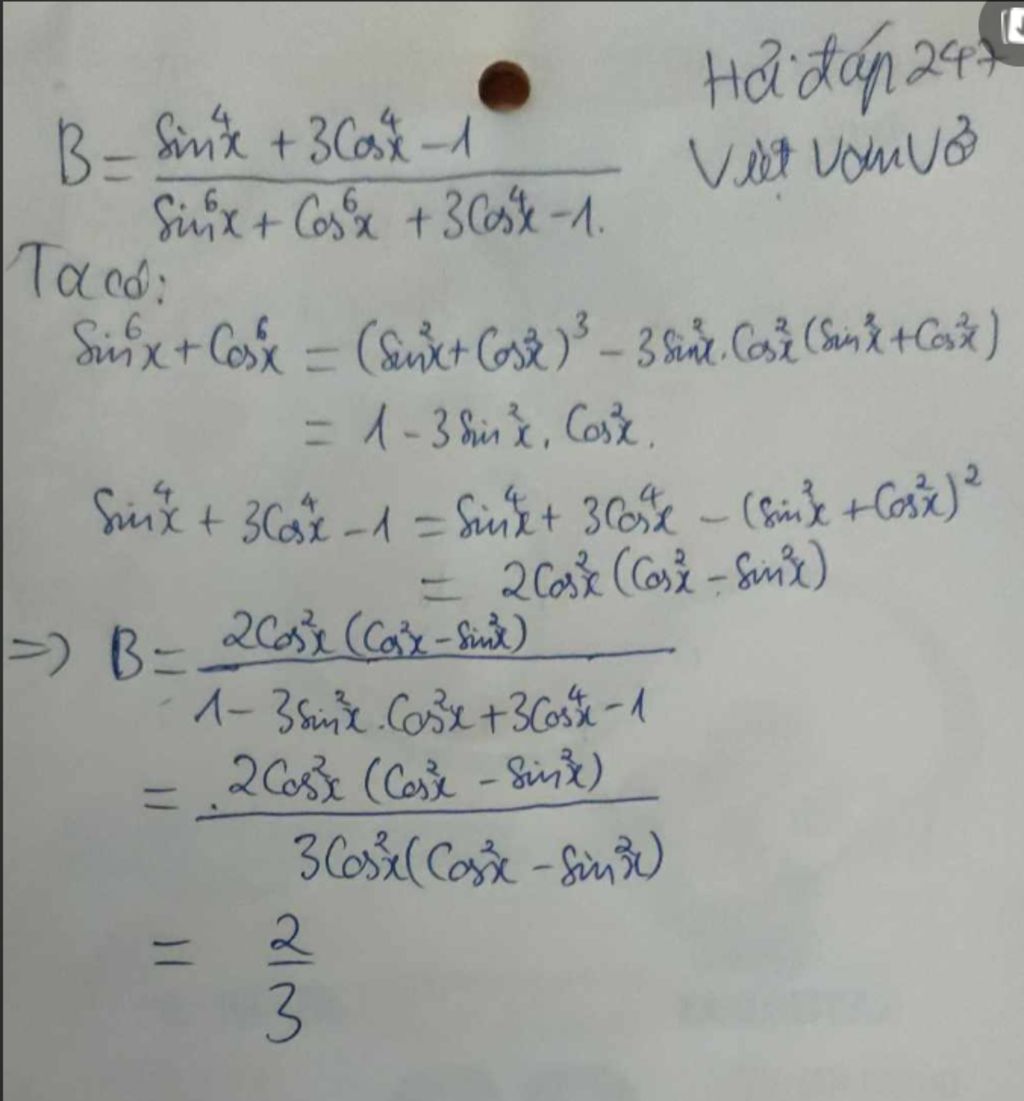 Hỏi đáp 247
Viết Vở
B = (sin⁴x + 3Cos⁴x - 1) / (sin⁶x + Cos⁶x + 3Cos⁴x - 1.)
Ta có:
Sin⁶x + Cos⁶x = (Sin²x + Cos²x)³ - 3Sin²x.Cos²x (Sin²x + Cos²x)
= 1 - 3Sin²x. Cos²x.
Sin⁴x + 3Cos⁴x - 1 = Sin⁴x + 3Cos⁴x - (Sin²x + Cos²x)²
= 2Cos²x (Cos²x - Sin²x)
=> B = 2Cos²x (Cos²x - Sin²x) / (1 - 3Sin²x.Cos²x + 3Cos⁴x - 1)
= 2Cos²x (Cos²x - Sin²x) / 3Cos²x (Cos²x - Sin²x)
= 2/3